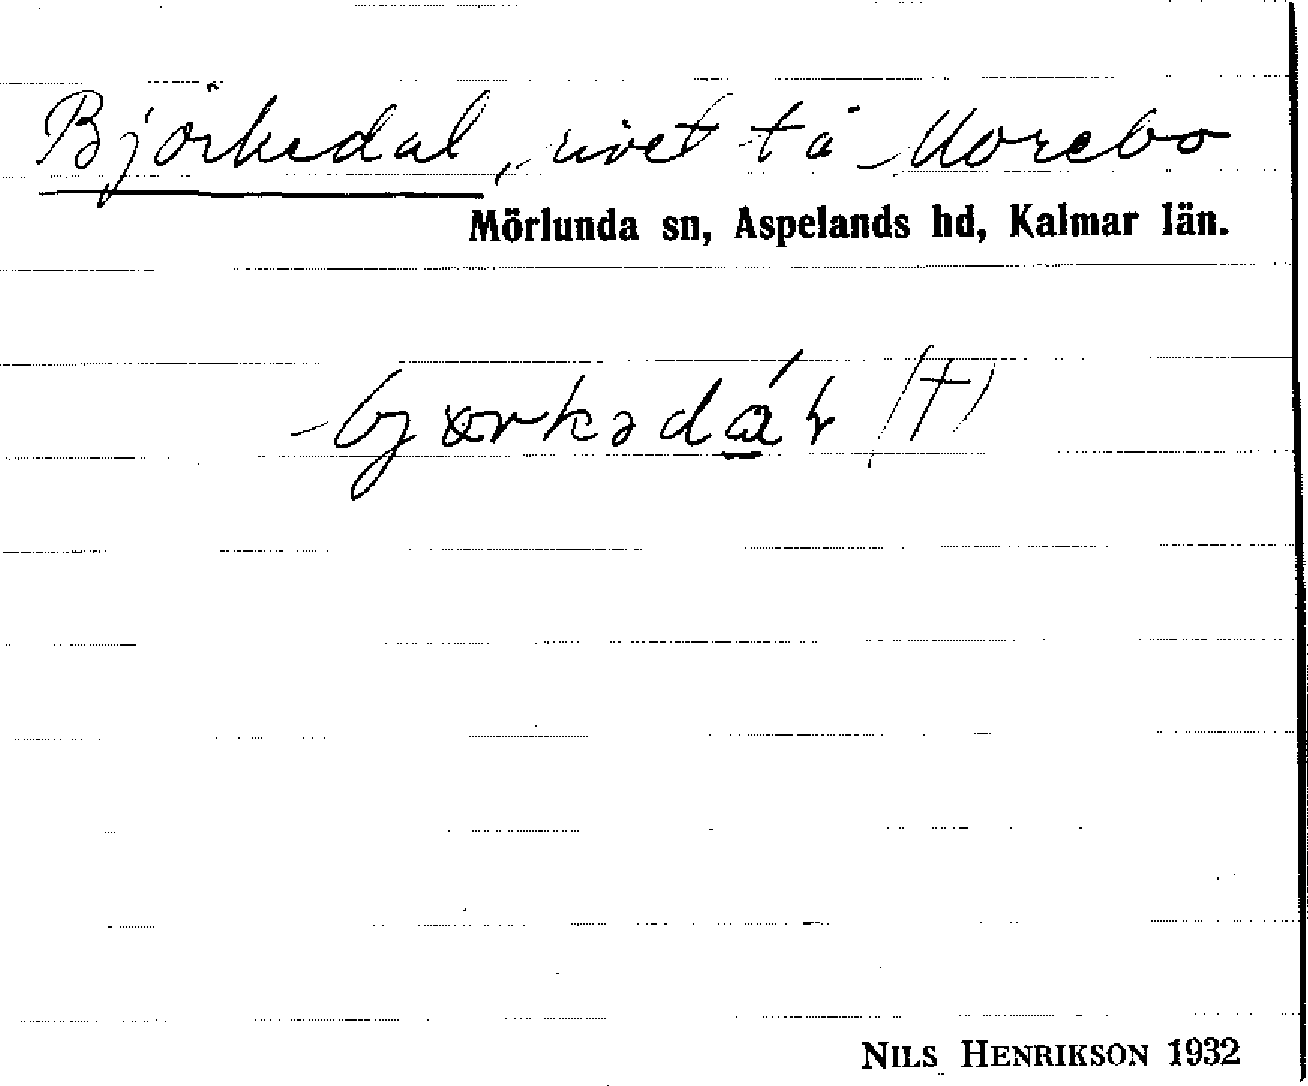 Björkedal, rivet tå Morebo
Mörlunda sn, Aspelands hd, Kalmar län.
(†)
NILS HENRIKSON 1932